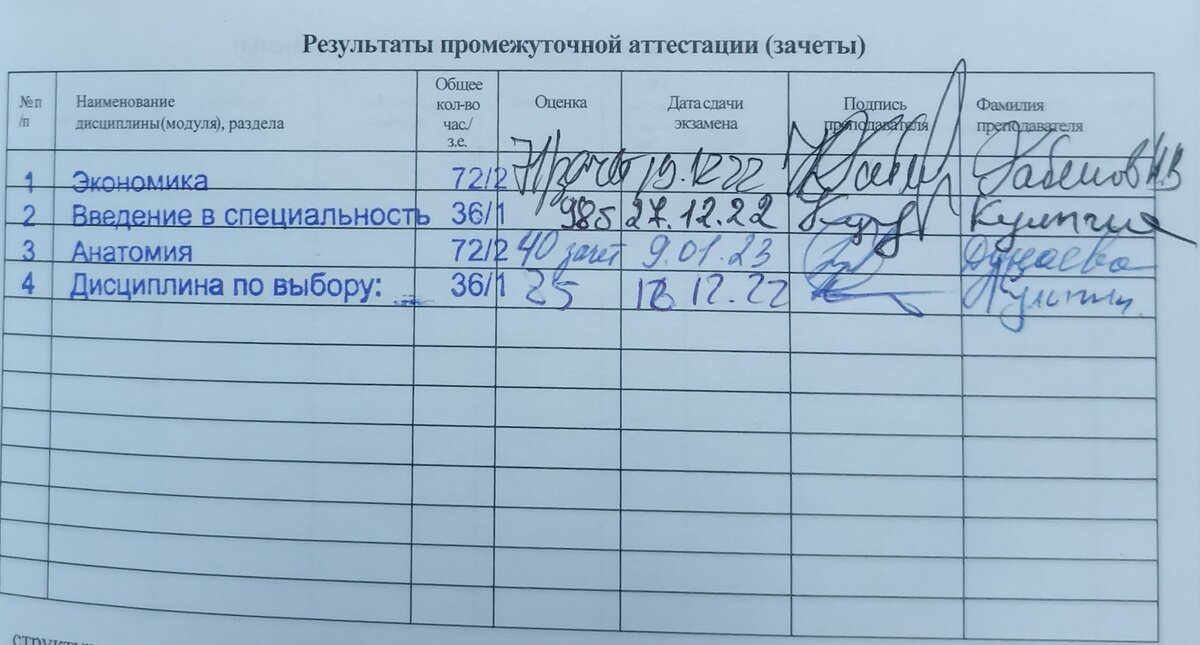 Результаты промежуточной аттестации (зачеты)
№ п/п Наименование дисциплины(модуля), раздела Общее кол-во час./з.е. Оценка Дата сдачи экзамена Подпись преподавателя Фамилия преподавателя
1 Экономика 72/2 зачет 19.12 22
2 Введение в специальность 36/1 98б 27.12.22 Кулыгия
3 Анатомия 72/2 40 зачет 9.01.23 Дунаева
4 Дисциплина по выбору: 36/1 25 12.22